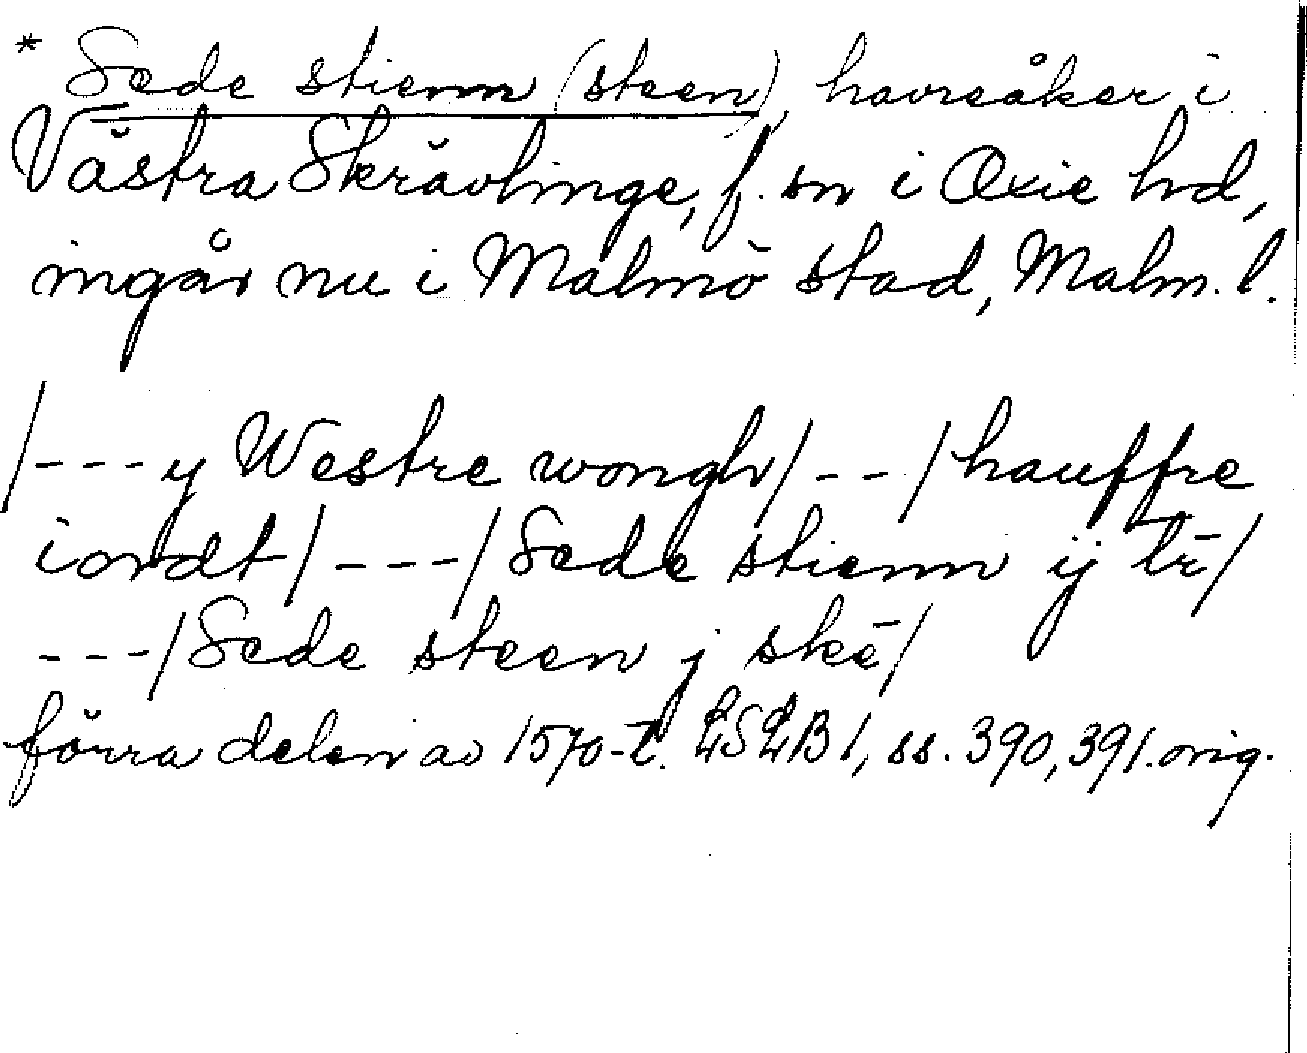 * Sede stienn (steen), havreåker i
Västra Skrävlinge, f. sn i Oxie hd,
ingår nu i Malmö stad, Malm. l.
/---y Westre wongh/--/hauffre
iordt/---/Sede stienn ij tr̄/
---/Sede steen j skē/
förra delen av 1570-t. LSLB 1, ss. 390, 391. orig.